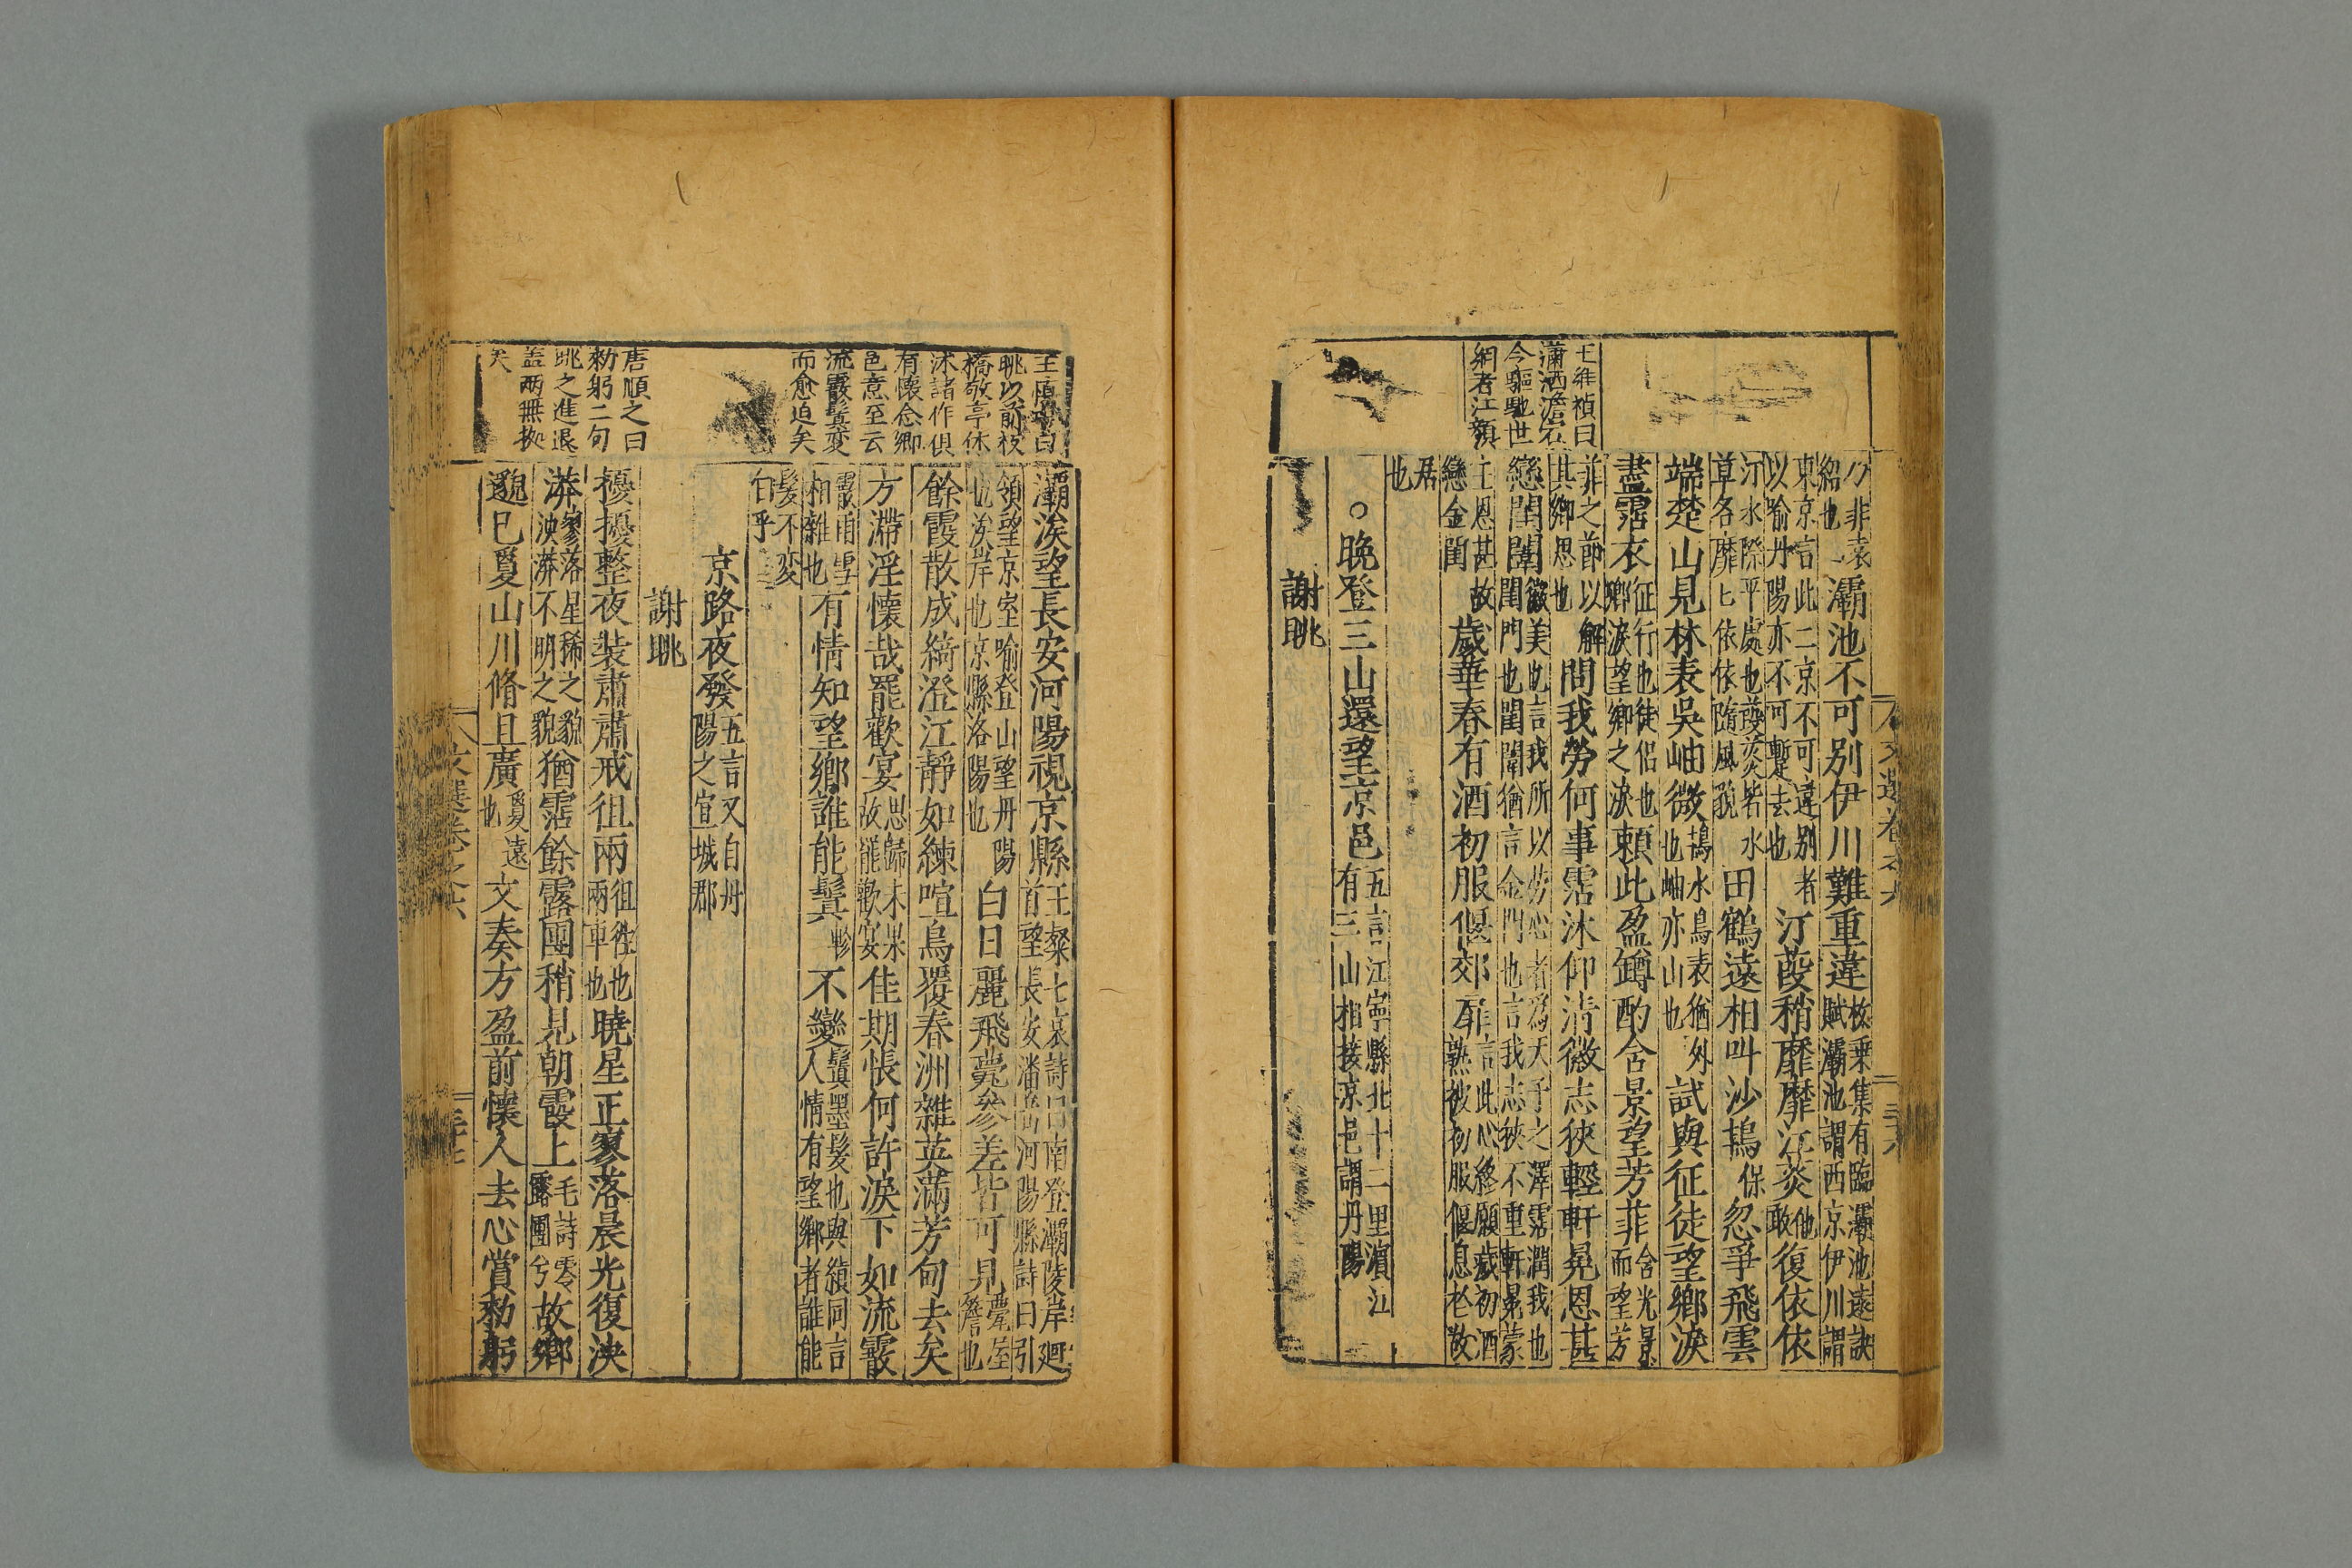 王維楨曰
瀟洒澹宕
今驅馳世
網者江顏
乃非袁紹也灞池不可別伊川難重違枚乘集有臨灞池遠訣賦灞池謂西京伊川謂
東京言此二京不可違別者以喻丹陽亦不可蹔去也汀葭稍靡靡江菼他敢復依依
汀水際平處也葭菼皆水草各靡匕依依隨風貌田鶴遠相叫沙鴇保忽爭飛雲
端楚山見林表吳岫微鴇水鳥表猶外也岫亦山也試與征徒望鄉淚
盡霑衣征行也徒侶也鄉淚望鄉之淚賴此盈罇酌含景望芳菲含光景而望芳
菲之節以解其鄉思也問我勞何事霑沐仰清徽志狹輕軒冕恩甚
戀閨闈徽美也言我所以勞心者為天子之澤霑潤我也閨門也閨闈猶言金門也言我志狹不重軒冕蒙
主恩甚故戀金閨歲華春有酒初服偃郊扉言此心終願歲初酒熟被初服偃息於敝
居也
○晚登三山還望京邑五言江寧縣北十二里濱江有三山相接京邑謂丹陽
謝眺
文選卷之六
眺以前枝
橋敬亭休
沐諸作俱
有懷念鄉
邑意至云
流霰鬒変
而愈迫矣
唐順之曰
勑躬二句
眺之進退
盖两無拠
矣
灞涘望長安河陽視京縣王粲七哀詩曰南登灞陵岸廻首望長安潘岳河陽縣詩曰引
領望京室喻登山望丹陽也涘岸也京縣洛陽也白日麗飛甍參差皆可見甍屋簷也
餘霞散成綺澄江靜如練喧鳥覆春洲雜英滿芳甸去矣
方滯淫懷哉罷歡宴思歸未果故罷歡宴佳期悵何許淚下如流霰
霰雨雪相雜也有情知望鄉誰能鬒軫不變鬒黑髮也與縝同言人情有望鄉者誰能
髮不変白乎
京路夜發五言又自丹陽之宣城郡
謝眺
擾擾整夜裝肅肅戒徂兩徂徃也兩車也曉星正寥落晨光復泱
漭寥落星稀之貌泱漭不明之貌猶霑餘露團稍見朝霞上毛詩零露團兮故鄉
邈已夐山川脩且廣夐遠也文奏方盈前懷人去心賞勑躬
文選卷之六